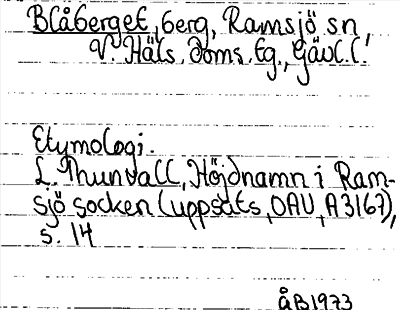 Blåberget, berg, Ramsjö sn,
V. Häls. doms. tg., Gävl. l.
Etymologi.
L. Thunvall, Höjdnamn i Ram-
sjö socken (uppsats, OAU, A3167),
s. 14
ÅB1973